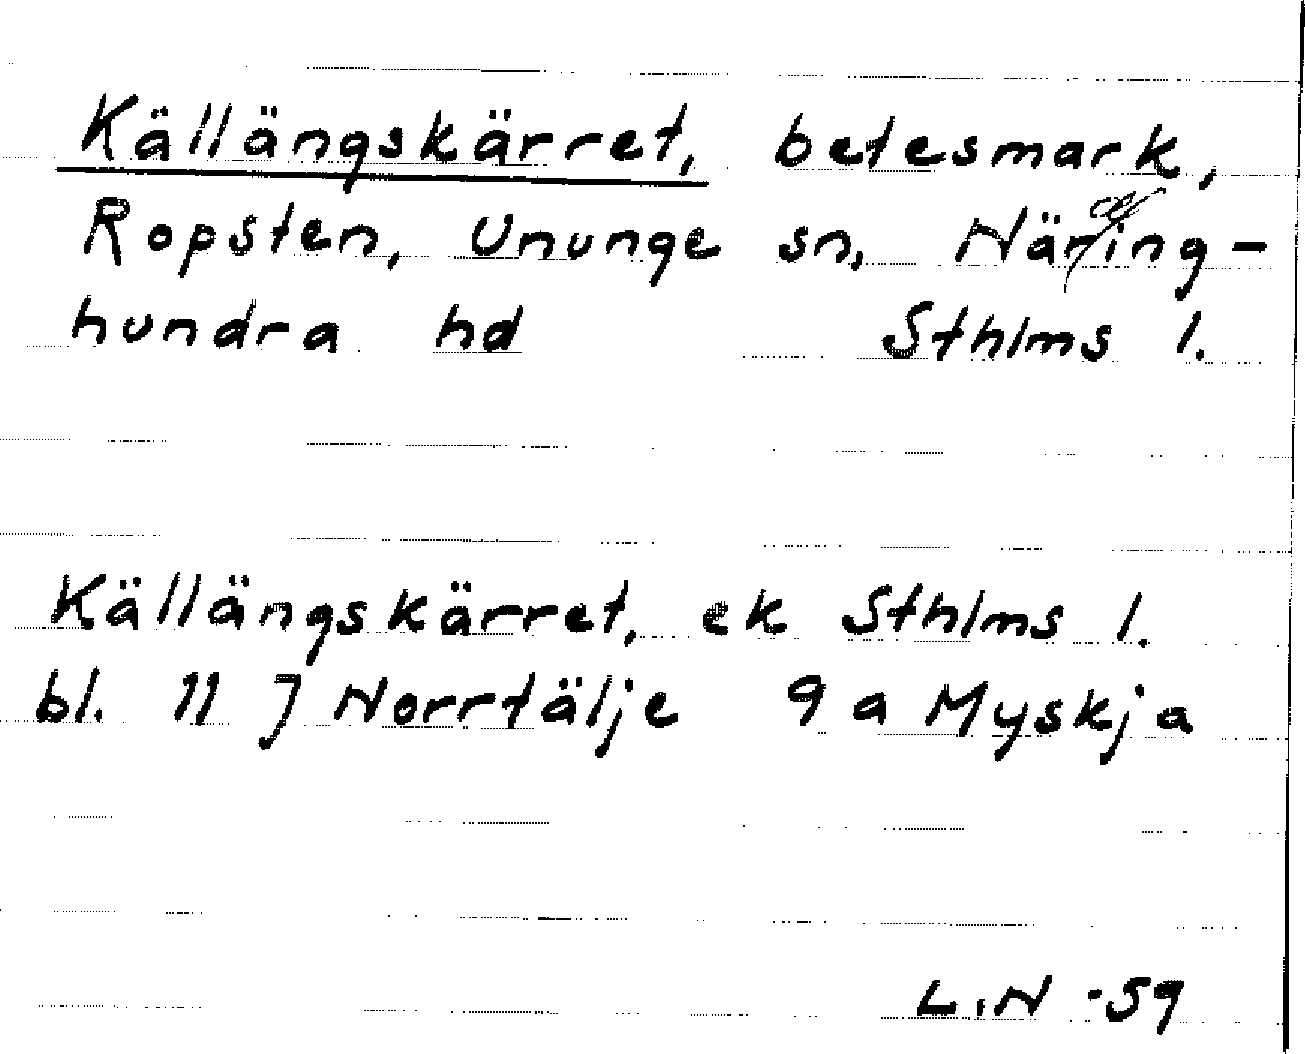 Källängskärret, betesmark,
Ropsten, Ununge sn, Näring-
hundra hd Sthlms l.
Källängskärret, ek Sthlms l.
bl. 11 J Norrtälje 9 a Myskja
L.N -59